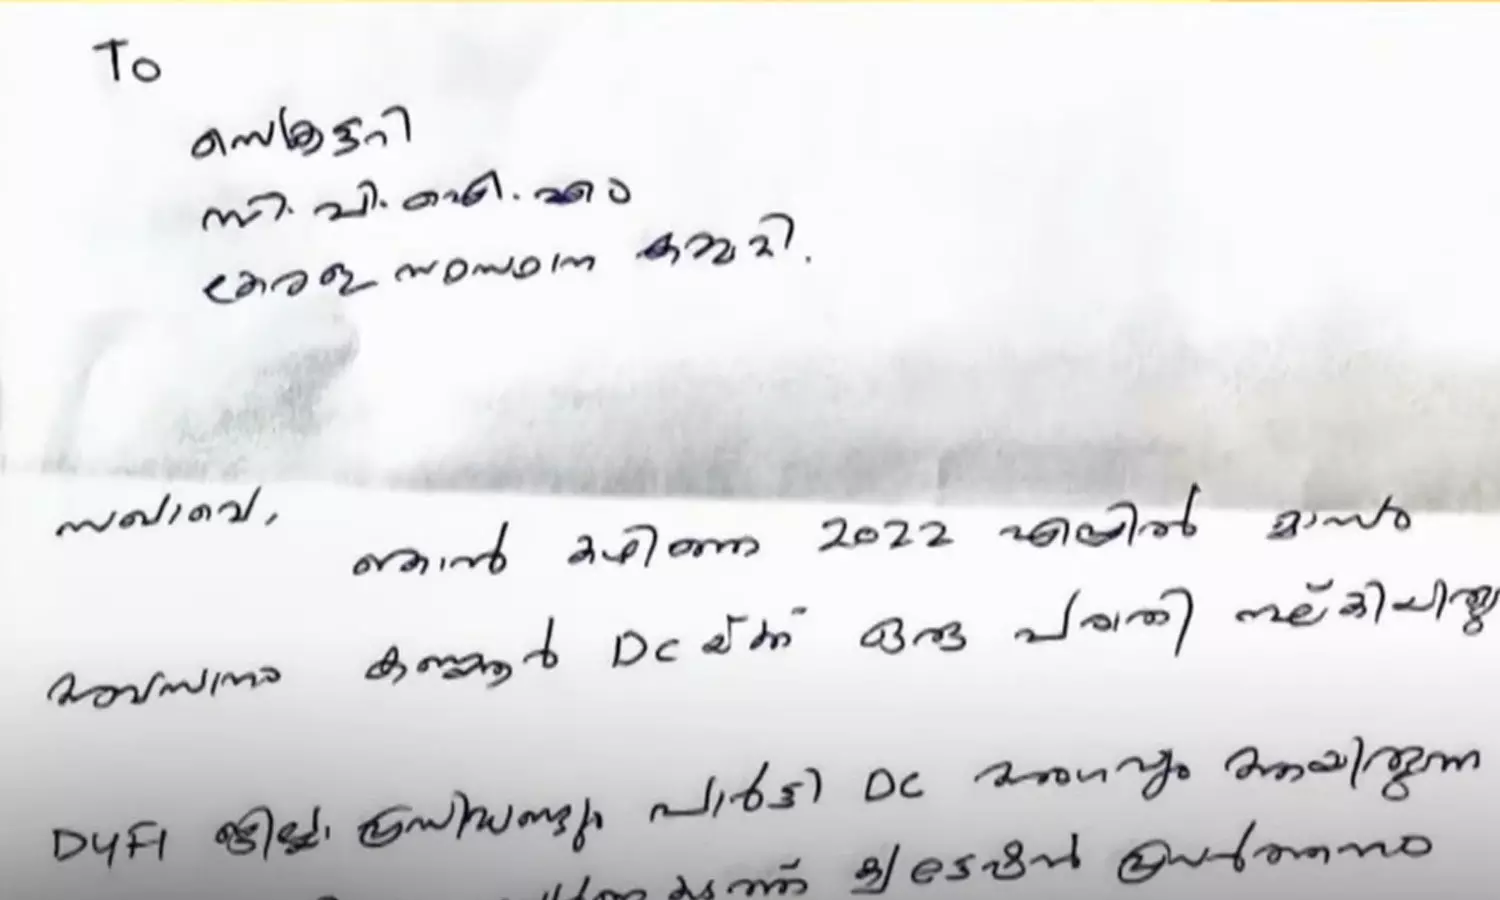 To
സെക്രട്ടറി
സി. പി. ഐ. എം
കേരള സംസ്ഥാന കമ്മറ്റി.
സഖാവെ,
ഞാൻ കഴിഞ്ഞ 2022 ഏപ്രിൽ മാസം
അവസാനം കണ്ണൂർ DC യ്ക്ക് ഒരു പരാതി നല്കിയിരുന്നു
DYFI ജില്ലാ പ്രസിഡണ്ടും പാർട്ടി DC അംഗവും ആയിരുന്ന
ക്വട്ടേഷൻ പ്രവർത്തനം